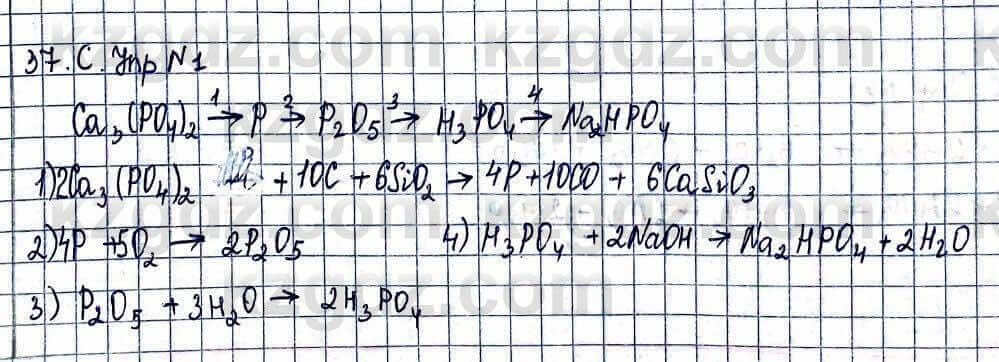 37. С. Упр N1
Ca₃(PO₄)₂ →¹ P →² P₂O₅ →³ H₃PO₄ →⁴ Na₂HPO₄
1) 2Ca₃(PO₄)₂ + 10C + 6SiO₂ → 4P + 10CO + 6CaSiO₃
2) 4P + 5O₂ → 2P₂O₅ 4) H₃PO₄ + 2NaOH → Na₂HPO₄ + 2H₂O
3) P₂O₅ + 3H₂O → 2H₃PO₄
kzgdz.com